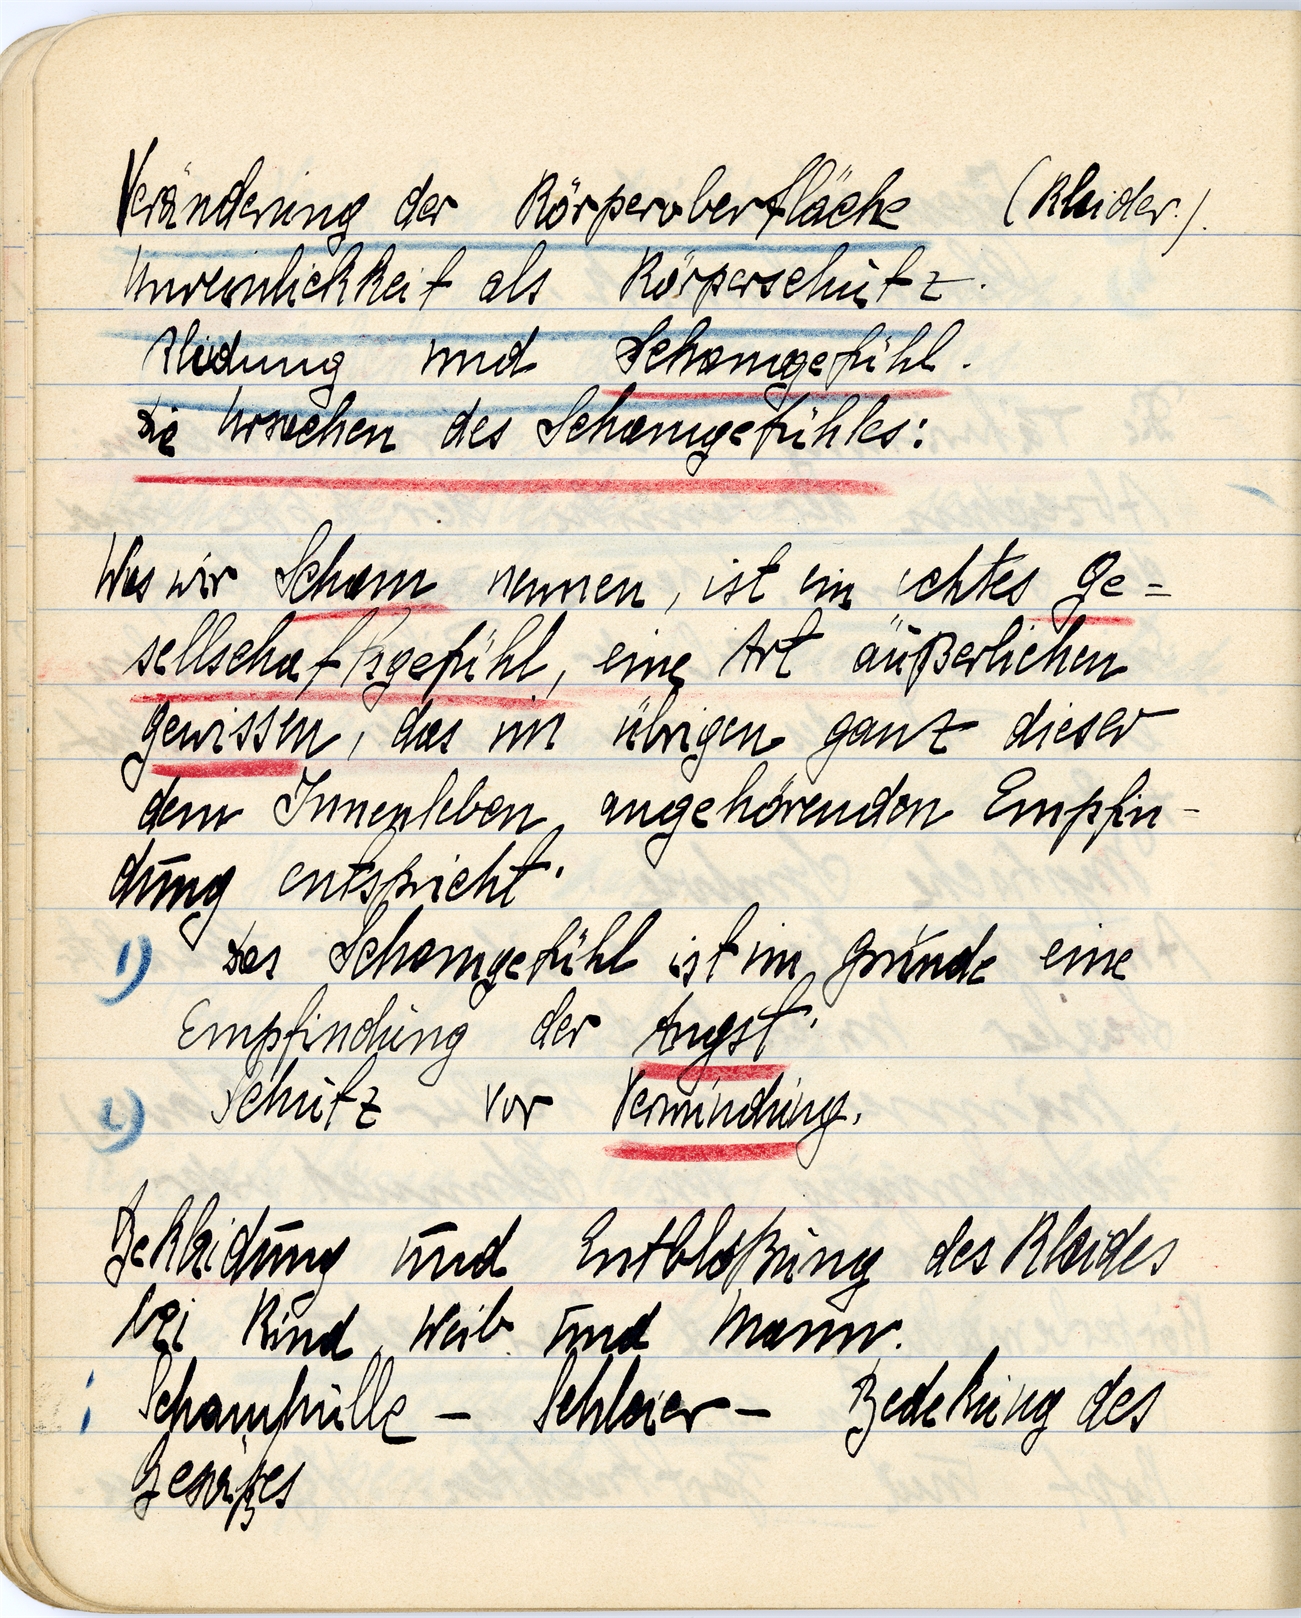 Veränderung der Körperoberfläche (Kleider.).
Unreinlichkeit als Körperschutz.
Kleidung und Schamgefühl.
Die Ursachen des Schamgefühles:
Was wir Scham nennen, ist ein echtes Ge=
sellschaftsgefühl, eine Art äußerlichen
Gewissen, das im übrigen ganz dieser
dem Innenleben angehörenden Empfin-
dung entspricht.
1) Das Schamgefühl ist im Grunde eine
Empfindung der Angst.
2) Schutz vor Verwundung.
Bekleidung und Entblößung des Kleides
bei Kind, Weib und Mann.
Schamhülle – Schleier – Bedekung des
Gesäßes